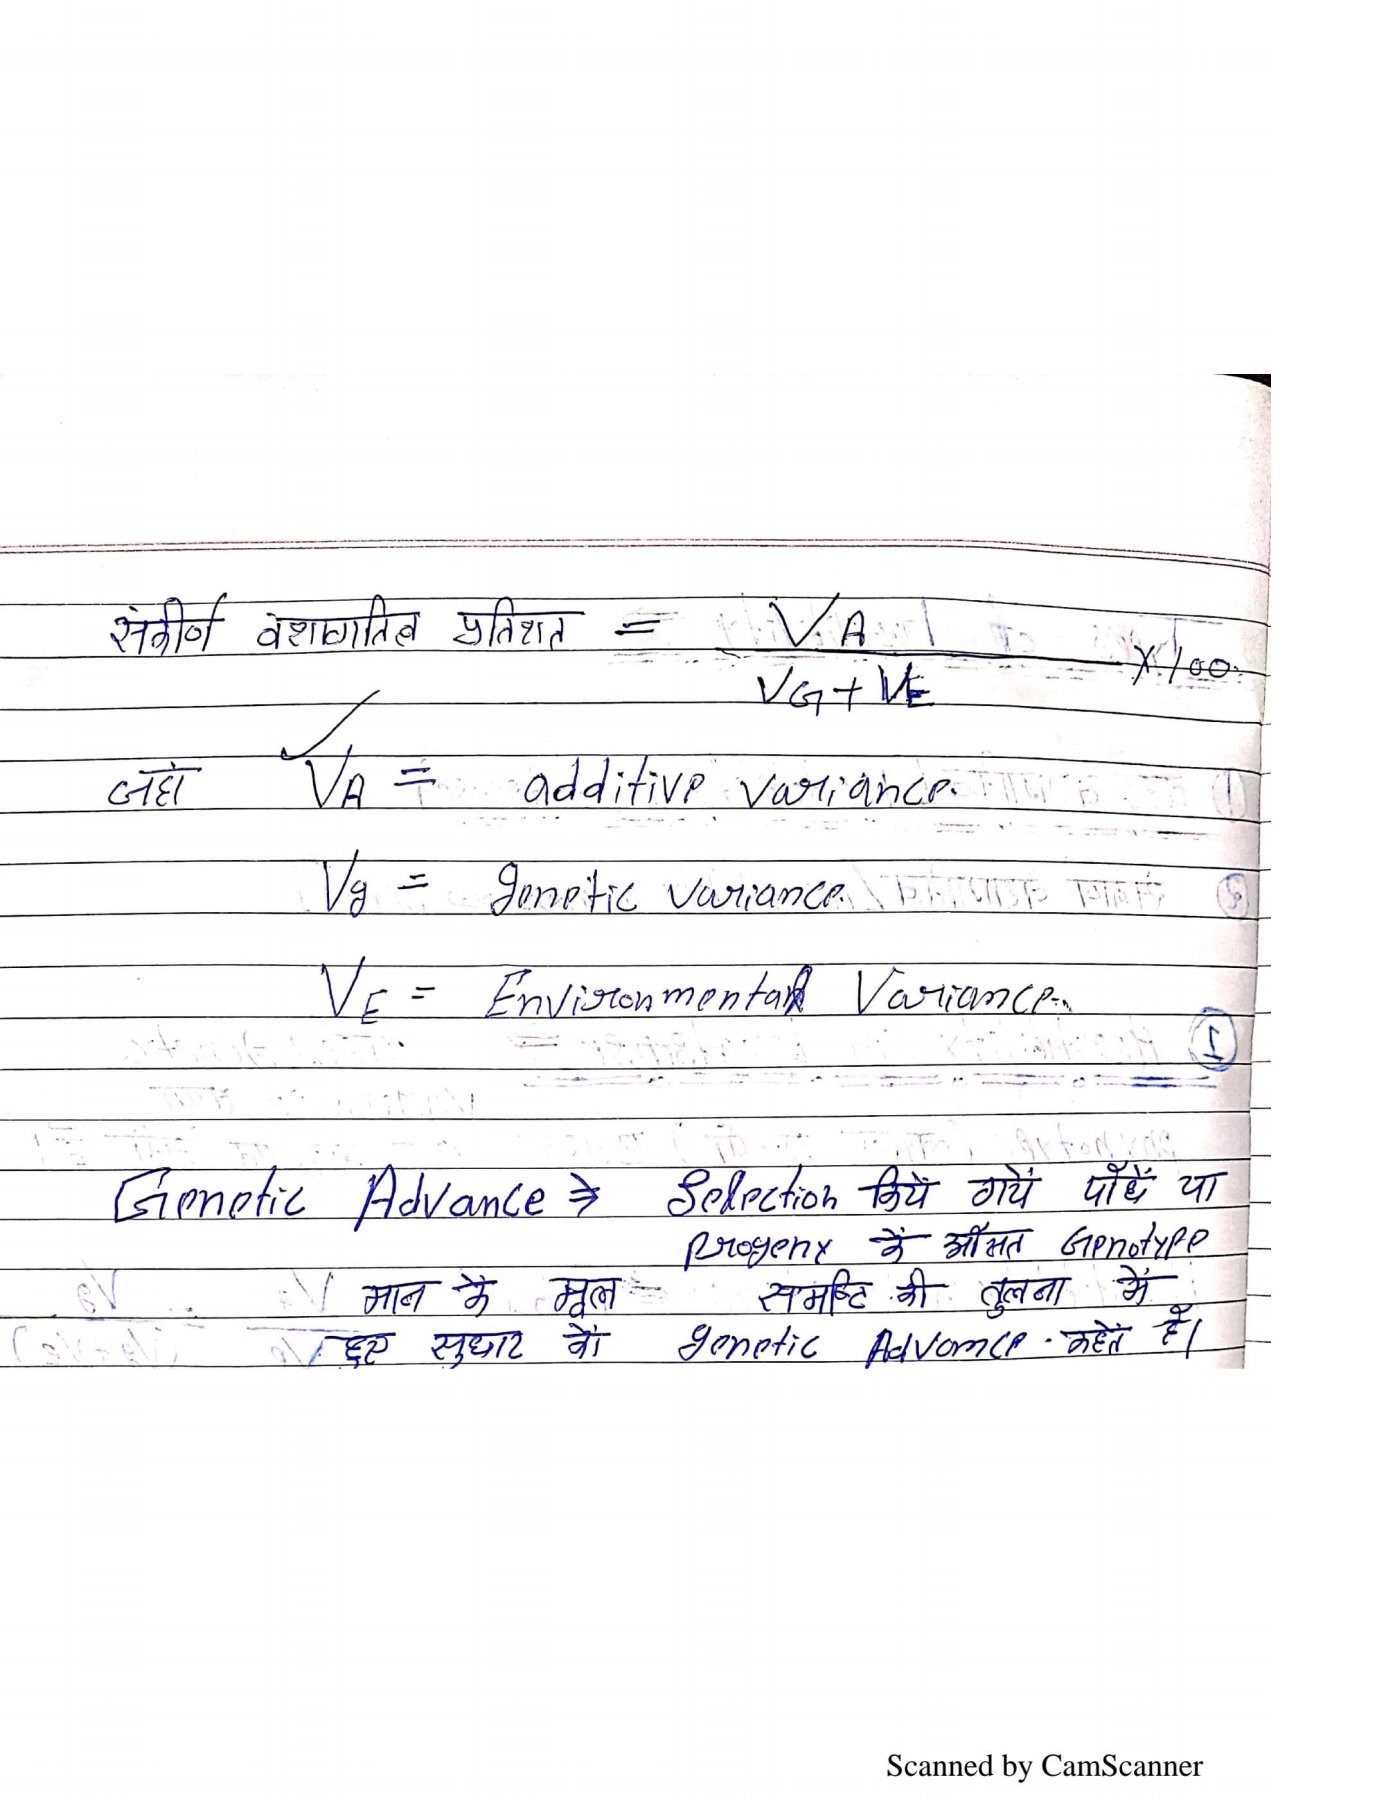 संकीर्ण वंशागतित्व प्रतिशत = VA / VG + VE × 100
जहाँ VA = additive variance.
Vg = genetic variance.
VE = Environmental Variance.
1
Genetic Advance ⇒ Selection किये गयें पौधें या
progeny के औसत Genotype
मान के मूल समष्टि की तुलना में
हुए सुधार को genetic Advance कहेते हैं।
Scanned by CamScanner